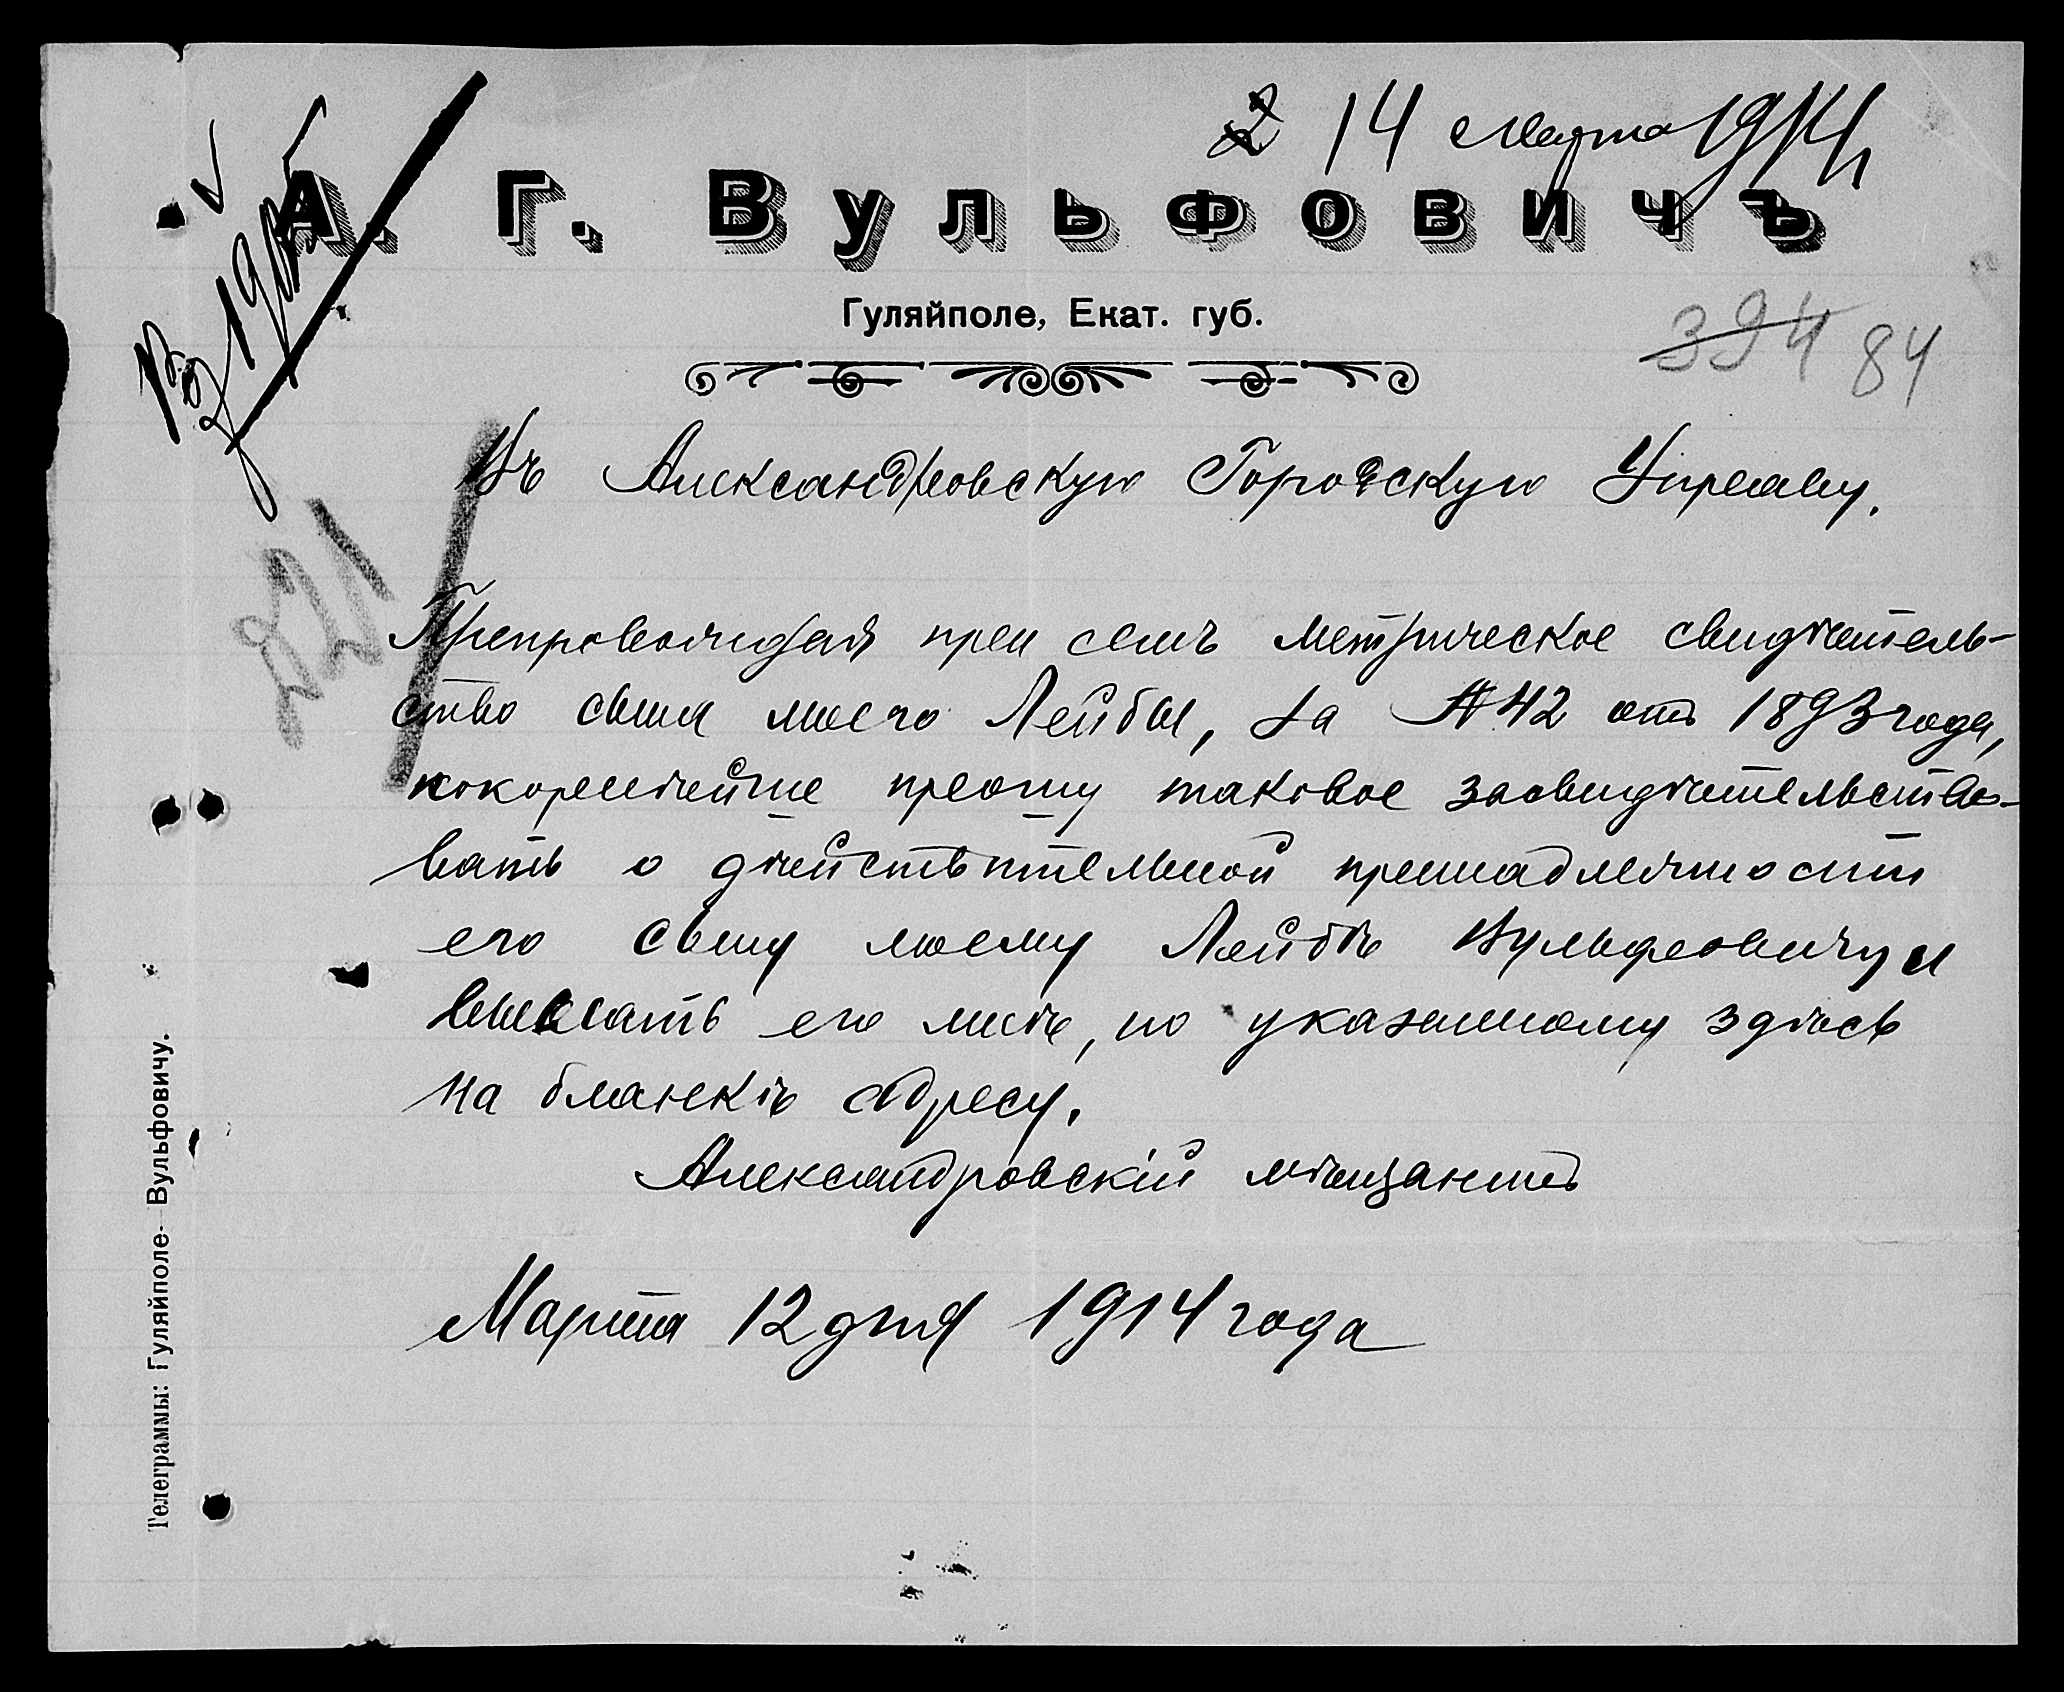 14 Марта 1914
А. Г. Вульфовичъ
Гуляйполе, Екат. губ.
394 84
221
Въ Александровскую Городскую Управу.
Препровождая при семъ метрическое свидѣтель-
ство сына моего Лейбы, за № 42 отъ 1893 года,
покорнѣйше прошу таковое засвидѣтельство-
вать о дѣйствительной принадлежности
его сыну моему Лейбѣ Вульфовичу и
выслать его мнѣ, по указанному здѣсь
на бланкѣ адресу.
Александровскій мѣщанинъ
Марта 12 дня 1914 года
Телеграммы: Гуляйполе- Вульфовичу.